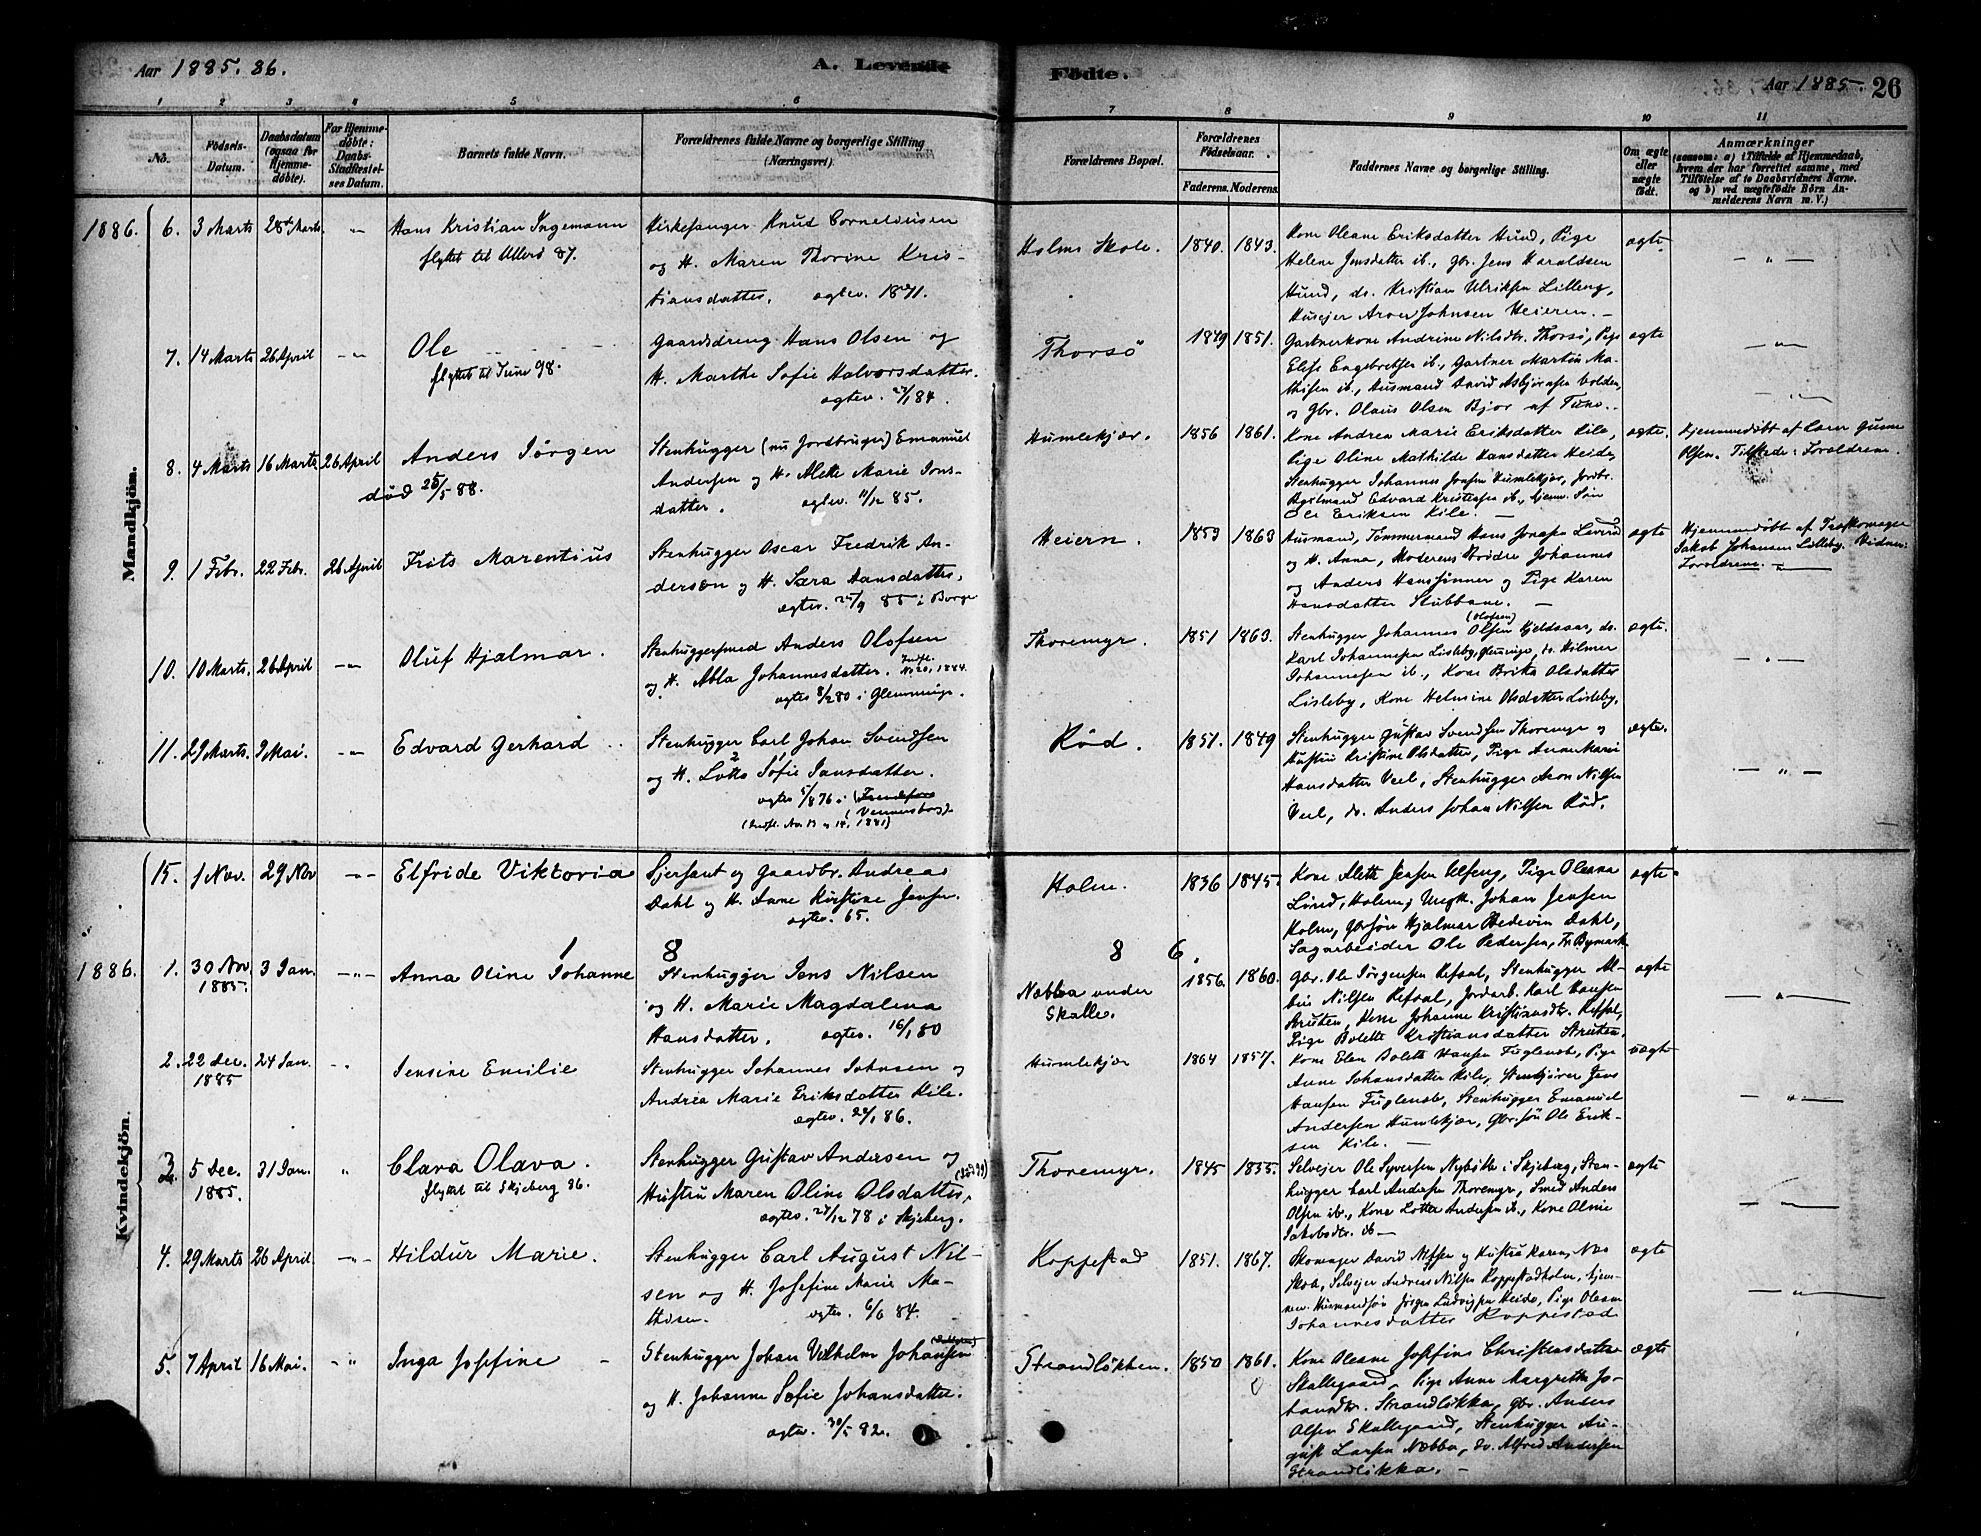 Aar 1885.86. A. Levende Födte. Aar 1885 26
1 2 3 4 5 6 7 8 9 10 11
No. Födsels-Datum. Daabsdatum (ogsaa for Hjemmedöbte). For Hjemmedöbte: Daabs-Stadfæstelses Datum. Barnets fulde Navn. Forældrenes fulde Navne og borgerlige Stilling (Næringsvei). Forældrenes Bopæl. Forældrenes Födselsaar. Faderens. Moderens. Faddernes Navne og borgerlige Stilling. Om ægte eller uægte födt. Anmærkninger (saasom: a) i Tilfælde af Hjemmedaab, hvem der har forrettet samme, med Tilföielse af to Daabsvidners Navne. og b) ved uægtefödte Börn Anmelderens Navn m. V.)
Mandkjön.
1886. 6. 3 Marts 28de Marts. -"- Hans Kristian Ingemann Kirkesanger Knud Corneliussen Holms Skole. 1840. 1843. Kone Oleane Eriksdatter Hund, Pige ægte - " -
flyttet til Ullerö 87. og H. Maren Thorine Kris- Helene Jensdatter ib., Gbr. Jens Haraldsen
tiansdatter. ægtev. 1871. Hund, do. Kristian Ulriksen Lilleng,
Husejer Aron Johnsen Heieren. -
7. 14 Marts 26 April -"- Ole Gaardsdreng Hans Olsen og Thorsö 1849 1851. Gartnerkone Andrine Nilsdtr. Thorsö, Pige ægte - " -
flyttet til Tune 98. H. Marthe Sofie Halvorsdatter. Elise Engebretsen ib., Gartner Martin Ma-
ægtev. 27/1 84. thisen ib., Husmand David Asbjörnsen Volden,
og Gbr. Olaus Olsen Bjor af Tune.
8. 4 Marts 16 Marts 26 April Anders Jörgen Stenhugger (nu Jordbruger) Emanuel Humlekjær. 1856 1861. Kone Andrea Marie Eriksdatter Kile, ægte. Hjemmedöbt af Lars Gunne
död 25/5 88. Andersen og H. Alette Marie Jons- Pige Oline Mathilde Hansdatter Heide, Olsen. Tilstede: Foroldrene.
datter. ægtev. 11/12 85. Stenhugger Johannes Jonsen Humlekjær, Jordbr.
Edvard Kristiansen ib., hjemv. Sön
Ole Eriksen Kile. -
9. 1 Febr. 22 Febr. 26 April Frits Marentius Stenhugger Oscar Fredrik An- Heiern. 1859 1863 Husmand, Tömmermand Hans Jonsen ægte Hjemmedöbt af Træskomager
dersön og H. Sara Hansdatter. og H. Anna, Moderens Brödre Johannes Jakob Johansen Lilleby. Vidner:
ægtev. 27/9 85 i Borge og Anders Hanssönner og Pige Karen Foroldrene.
Hansdatter Stubbane. -
10. 10 Marts. 26 April -"- Oluf Hjalmar. Stenhuggersmed Anders Olofsen Thoremyr. 1851 1863. Stenhugger Johannes Olsen (Olofsen) Kjeldsaas, do. ægte. - " -
og H. Abla Johannesdatter. Indfl. No 20, 1884. Karl Johannesen Lisleby, Glemminge, do. Hilmer
ægtev 8/2 80 i Glemminge. Johannesen ib., Kone Brita Olsdatter
Lisleby, Kone Helmine Olsdatter Lisleby.
11. 29 Marts. 9 Mai. -"- Edvard Gerhard Stenhugger Carl Johan Svendsen Röd. 1851. 1849 Stenhugger Gustav Svendsen Thoremyr og ægte. - " -
og H. Lotta Sofie Jansdatter. Hustru Kristine Olsdatter, Pige Anne Marie
ægtev 5/8 76 i (Tunefors Hansdatter Veel, Stenhugger Aron Nilsen
(Vennersborg). Veel, do. Anders Johan Nilsen Röd.
(Indfl. No 13 og 14, 1881)
Kvindekjön.
15. 1 Nov. 29 Nov -"- Elfride Viktoria Sjersant og Gaardbr. Andreas Holm. 1836 1845. Kone Aleth Jensen Ulfeng, Pige Oleana ægte
Dahl og H. Anne Kirstine Jensen. Lund, Holm, Ungk. Johan Jensen
ægtev. 65. Holm, Gbrsön Hjalmar Hedevin Dahl,
Sagarbeider Ole Pedersen, Fr. Bymark.
1 8 8 6.
1886. 1. 30 Nov 1885. 3 Jan. -"- Anna Oline Johanne Stenhugger Jens Nilsen Nabba under Skalle. 1856. 1860. Gbr. Ole Jörgensen Refsal, Stenhugger Al- ægte - " -
og H. Marie Magdalena bin Nilsen Refsal, Jordarb. Karl Hansen
Hansdatter. ægtev. 16/1 80 Struten, Kone Johanne Kristiansdtr. Refsal,
Pige Bolette Kristiansdatter Struten.
2. 22 Dec. 1885 24 Jan. -"- Jensine Emilie Stenhugger Johannes Johnsen og Humlekjær 1864 1857. Kone Elen Bolette Hansen Fuglenob, Pige uægte - " -
Andrea Marie Eriksdatter Kile. Anne Johansdatter Kile, Stenkjörer Jens
ægtev. 24/1 86. Hansen Fuglenob, Stenhugger Emanuel
Andersen Humlekjær, Gbrsön Ole Erik-
sen Kile. -
3. 5 Dec. 1885. 31 Jan. " Clara Olava. Stenhugger Gustav Andersen og Thoremyr. 1845 1855. Selvejer Ole Syversen Nybötte i Skjeberg, Sten- ægte - " -
flyttet til Skjeberg 86. Hustru Maren Oline Olsdatter, hugger Carl Andersen Thoremyr, Smed Anders
ægtev. 27/12 78 i Skjeberg. Olsen ib., Kone Lotta Andersen ib., Kone Olava
Jakobsdtr. ib -
4. 29 Marts 26 April. -"- Hildur Marie. Stenhugger Carl August Nil- Koppestad 1851. 1867. Skomager David Nilsen og Hustru Karen, Næs ægte - " -
sen og H. Josefine Marie Ma- Skob, Selvejer Andreas Nilsen Koppestadholm, hjem-
thisen. ægtev. 6/6 84. mev. Husmandsön Jörgen Ludvigsen Heide, Pige Oleana
Johannesdatter Koppestad
5. 7 April 16 Mai. -"- Inga Josefine Stenhugger Johan Vilhelm Johansen Strandlökken. 1850 1861. Kone Oleane Josefine Christensdatter ægte
og H. Johanne Sofie Johansdatter. Skallegaard, Pige Anne Margrethe Jo-
ægtev. 30/5 82. hansdtr. Strandlökka, Gbr. Anders
Olsen Skallegaard, Stenhugger Au-
gust Larsen Nabba, do. Alfred Andersen
Strandlökka. -